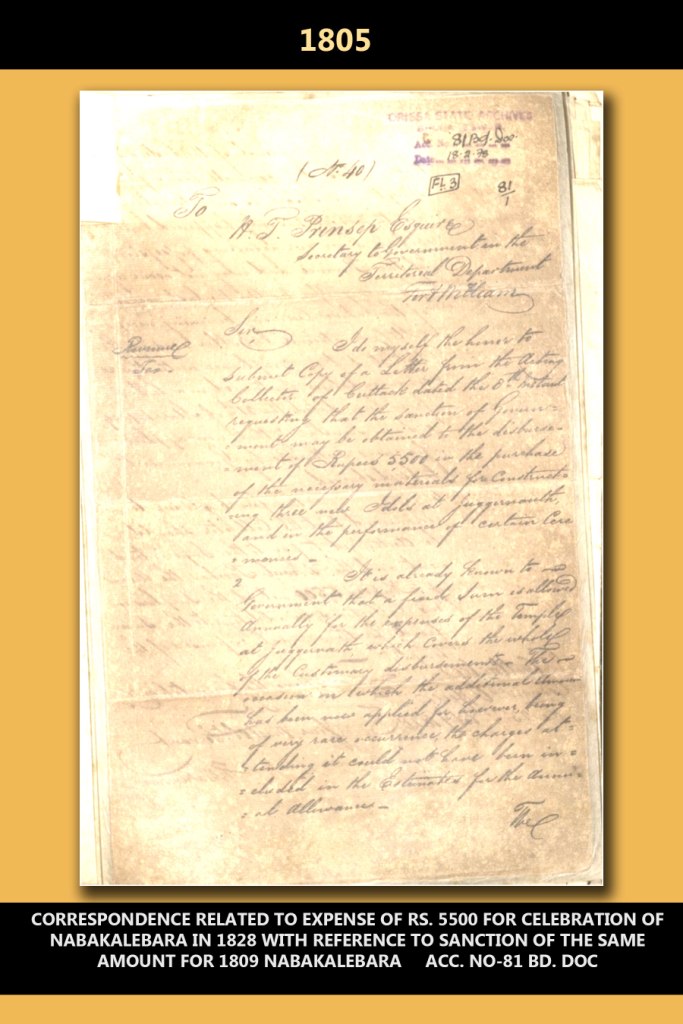 1805
ORISSA STATE ARCHIVES
81 Bd. Doc
Date 18.2.
(No. 40)
FL 3
81
1
To
H. T. Prinsep Esquire
Secretary to Government in the
Territorial Department
Fort William
Sir,
Revenue
I do myself the honor to
submit Copy of a Letter from the Acting
Collector of Cuttack dated the 8th Instant
requesting that the sanction of Govern-
-ment may be obtained to the disburse-
-ment of Rupees 5500 in the purchase
of the necessary materials for Construct-
ing three new Idols at Juggernauth,
and in the performance of certain Cere
-monies -
2 It is already known to
Government that a fixed Sum is allowed
Annually for the expenses of the Temple
at Juggernath which covers the whole
of the Customary disbursements. The
occasion on which the additional
has been now applied for however, being
of very rare occurrence, the charges at-
-tending it could not have been in=
=cluded in the Estimates for the Annu-
=al Allowance -
The
CORRESPONDENCE RELATED TO EXPENSE OF RS. 5500 FOR CELEBRATION OF
NABAKALEBARA IN 1828 WITH REFERENCE TO SANCTION OF THE SAME
AMOUNT FOR 1809 NABAKALEBARA ACC. NO-81 BD. DOC